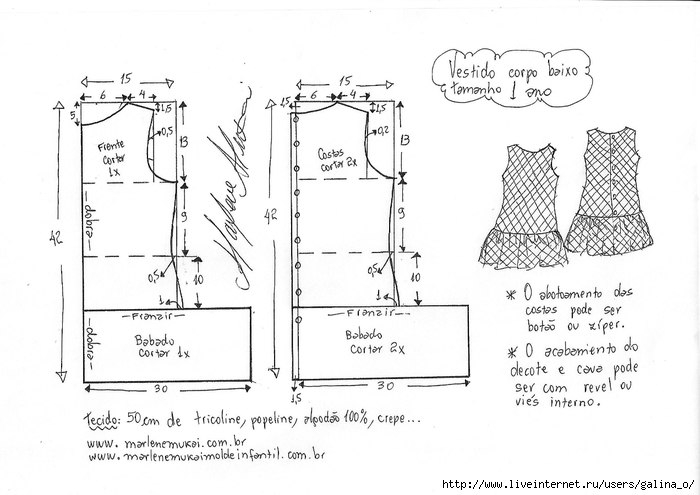 Vestido corpo baixo
tamanho 1 ano
15
6 4
5
1,5
0,5
Frente
cortar
1x
13
dobra
9
42
0,5
10
1
Franzir
dobra
Babado
cortar 1x
30
15
6 4
1,5
1,5
0,2
Costas
cortar 2x
13
9
42
0,5
10
1
Franzir
Babado
cortar 2x
30
1,5
* O abotoamento das
costas pode ser
botão ou zíper.
* O acabamento do
decote e cava pode
ser com revel ou
viés interno.
Tecido: 50cm de tricoline, popeline, algodão 100%, crepe...
www.marlenemukai.com.br
www.marlenemukaimoldeinfantil.com.br
http://www.liveinternet.ru/users/galina_o/